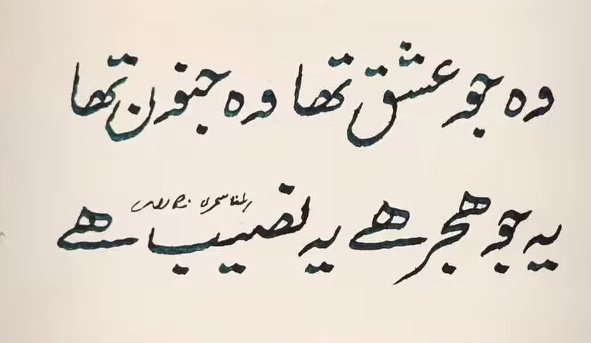 وہ جو عشق تھا وہ جنون تھا
یہ جو ہجر ہے یہ نصیب ہے